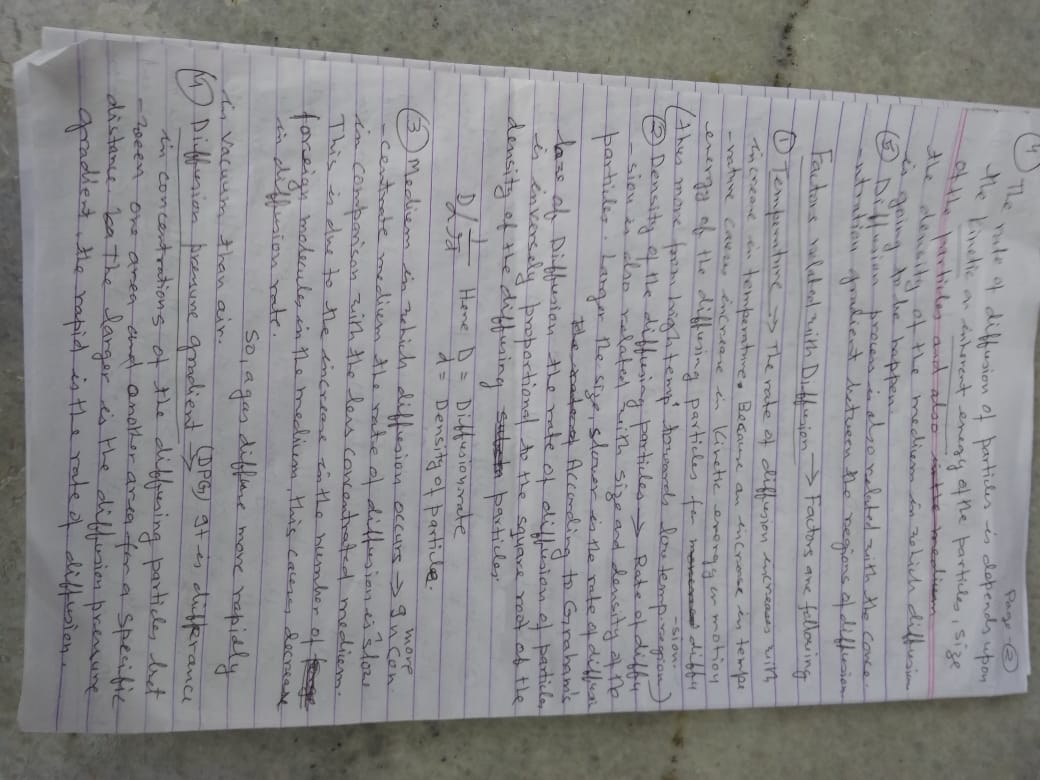 Page-②
④ The rate of diffusion of particles is depends upon
the kinetic or inherent energy of the particles, size
of the particles and also
the density of the medium in which diffusion
is going to be happen.
⑤ Diffusion process is also related with the conce-
-ntration gradient between the regions of diffusion
Factors related with Diffusion → Factors are following
① Temperature → The rate of diffusion increases with
increase in temperature. Because an increase in tempe
-rature causes increase in Kinetic energy or motion
energy of the diffusing particles for diffu
-sion.
(thus more from high temp towards low temp region)
② Density of the diffusing particles → Rate of diffu
-sion is also related with size and density of the
particles. Larger the size, slower is the rate of diffusi
According to Graham's
law of Diffusion the rate of diffusion of particles
is inversely proportional to the square root of the
density of the diffusing particles.
D ∝ 1/√d Here D = Diffusion rate
d = Density of particle.
③ Medium in which diffusion occurs → In more con
-centrate medium the rate of diffusion is slow
in comparison with the less concentrated medium.
This is due to the increase in the number of
foreign molecules in the medium, this causes decrease
in diffusion rate.
So a gas diffuse more rapidly
in vacuum than air.
④ Diffusion pressure gradient → (DPG) It is differance
in concentrations of the diffusing particles bet
-ween one area and another area for a specific
distance The larger is the diffusion pressure
gradient, the rapid is the rate of diffusion.